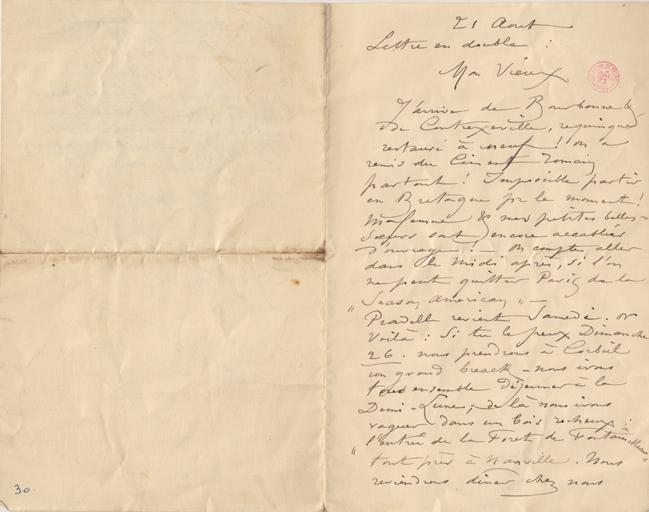 21 Aout
Lettre en double :
Mon Vieux
J'arrive de Bourbonne &
de Contrexeville, requinqué
restauré à neuf ! On a
remis du Ciment Romain
partout ! Impossible partir
en Bretagne pr le moment !
Ma femme & mes petites belles-
Sœurs sont encore accablées
d'ouvrage ! — On compte aller
dans le Midi après, si l'on
ne peut quitter Paris de la
"Season American" —
Pradelle revient Samedi. or
Voilà : Si tu le peux Dimanche
26. nous prendrons à Corbeil
un grand breack - nous irons
tous ensemble déjeuner à la
Demi-Lune ; de là nous irons
vaguer dans un bois rocheux :
"l'entrée de la Foret de Fontainebleau"
tout près à Nanville. Nous
reviendrons diner chez nous
30.